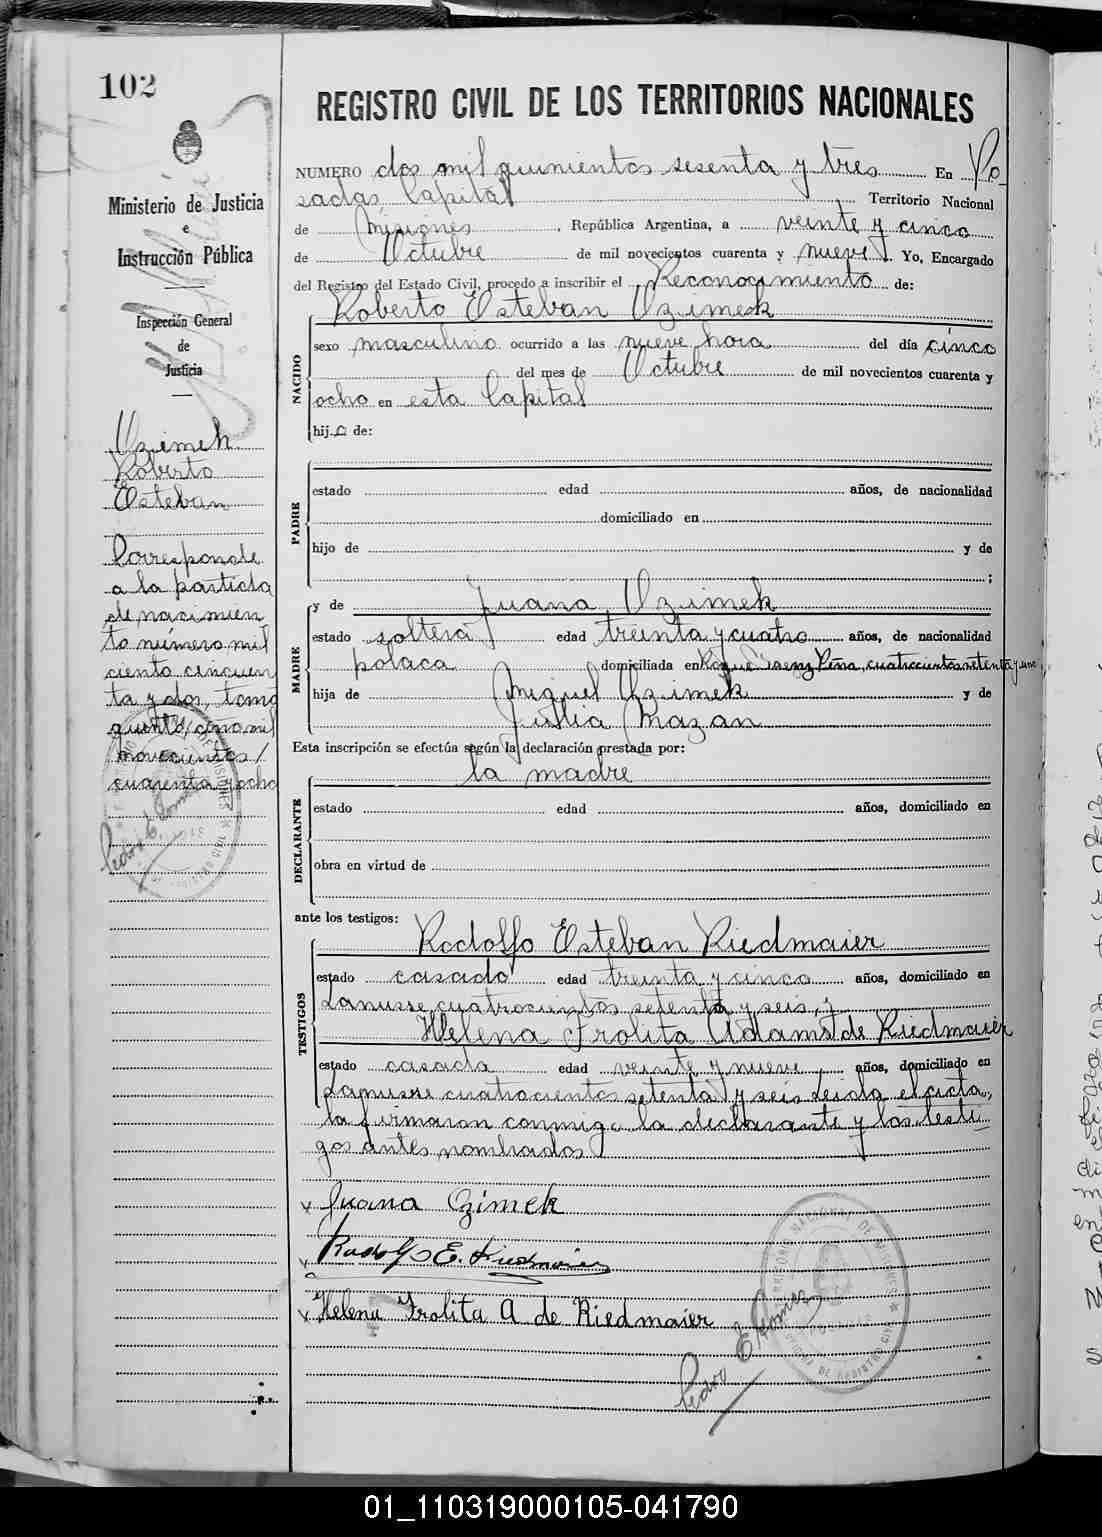 102
Ministerio de Justicia
e
Instrucción Pública
Inspección General
de
Justicia
Ozimek
Roberto
Esteban
Corresponde
a la partida
de nacimien
to número mil
ciento cincuen
ta y dos, tomo
quinto, año mil
novecientos
cuarenta y ocho
Pedro E. Gomez
REGISTRO CIVIL DE LOS TERRITORIOS NACIONALES
NUMERO dos mil quinientos sesenta y tres En Po-
sadas Capital Territorio Nacional
de Misiones, República Argentina, a veinte y cinco
de Octubre de mil novecientos cuarenta y nueve. Yo, Encargado
del Registro del Estado Civil, procedo a inscribir el Reconocimiento de:
Roberto Esteban Ozimek
NACIDO
sexo masculino ocurrido a las nueve hora del día cinco
del mes de Octubre de mil novecientos cuarenta y
ocho en esta Capital
hijo de:
PADRE
estado edad años, de nacionalidad
domiciliado en
hijo de y de
;
MADRE
y de Juana Ozimek
estado soltera edad treinta y cuatro años, de nacionalidad
polaca domiciliada en Roque Saenz Peña, cuatrocientos setenta y uno
hija de Miguel Ozimek y de
Julia Mazan
Esta inscripción se efectúa según la declaración prestada por:
la madre
DECLARANTE
estado edad años, domiciliado en
obra en virtud de
ante los testigos:
TESTIGOS
Rodolfo Esteban Riedmaier
estado casado edad treinta y cinco años, domiciliado en
Lanusse cuatrocientos setenta y seis, y
Helena Frolita Adams de Riedmaier
estado casada edad veinte y nueve años, domiciliado en
Lanusse cuatrocientos setenta y seis Leida el acta,
la firmaron conmigo la declarante y los testi
gos antes nombrados
Juana Ozimek
Rodolfo E. Riedmaier
Helena Frolita A de Riedmaier
Pedro E Gomez
01_110319000105-041790